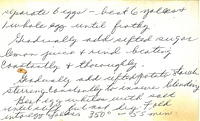 separate 6 eggs - beat 6 yolks &
1 whole egg until frothy
Gradually add sifted sugar
lemon juice & rind - beating
constantly & thoroughly.
Gradually add sifted potato starch
stirring constantly to ensure blending
Beat egg whites with salt
until stiff but not dry. Fold
into egg yolks 350° - 55 min.